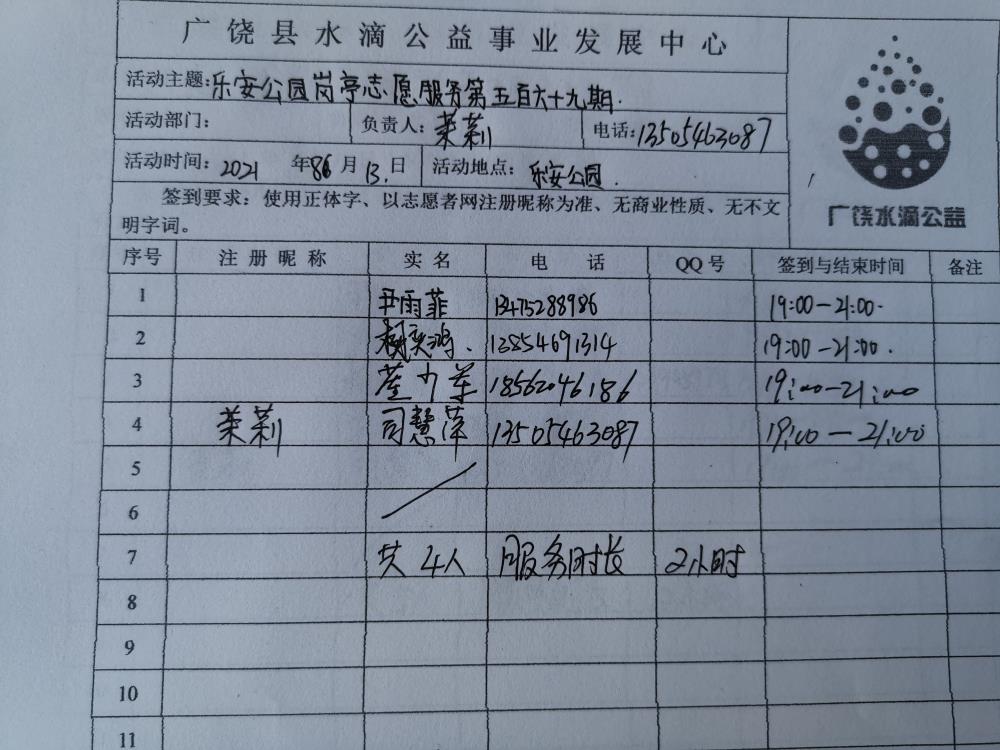 广饶县水滴公益事业发展中心
活动主题：乐安公园岗亭志愿服务第五百六十九期.
活动部门： 负责人：茉莉 电话：13505463087
活动时间：2021 年 6 月 13. 日 活动地点：乐安公园.
签到要求：使用正体字、以志愿者网注册昵称为准、无商业性质、无不文
明字词。
广饶水滴公益
序号 注册昵称 实名 电 话 QQ号 签到与结束时间 备注
1 尹雨菲 13475288986 19:00-21:00.
2 13854691314 19:00-21:00.
3 18562046186 19:00-21:00
4 茉莉 司慧萍 13505463087 19:00-21:00
5
6
7 共4人 服务时长 2小时
8
9
10
11